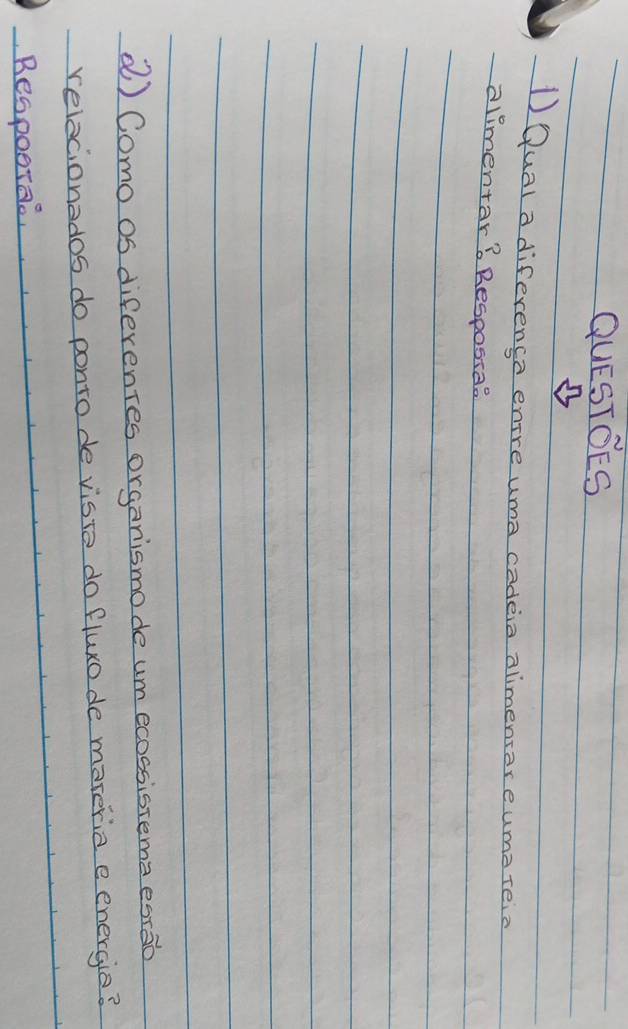 QUESTÕES
1) Qual a diferença entre uma cadeia alimentar e uma teia
alimentar? Resposta:
2) Como os diferentes organismo de um ecossistema estão
relacionados do ponto de vista do fluxo de matéria e energia?
Resposta: